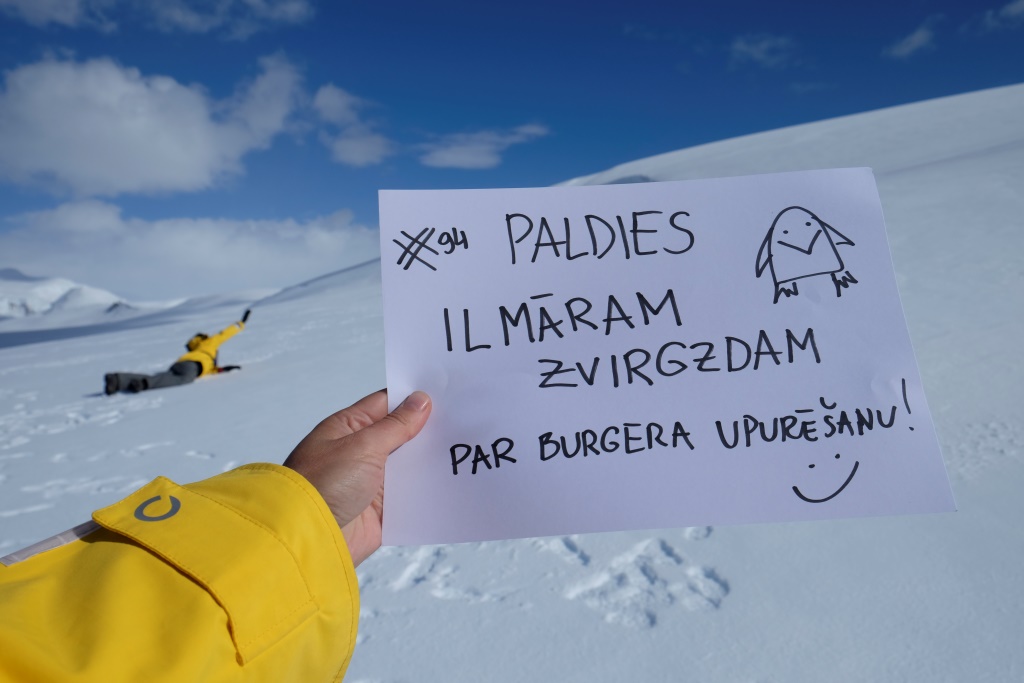 #94 PALDIES
ILMĀRAM
ZVIRGZDAM
PAR BURGERA UPURĒŠANU!